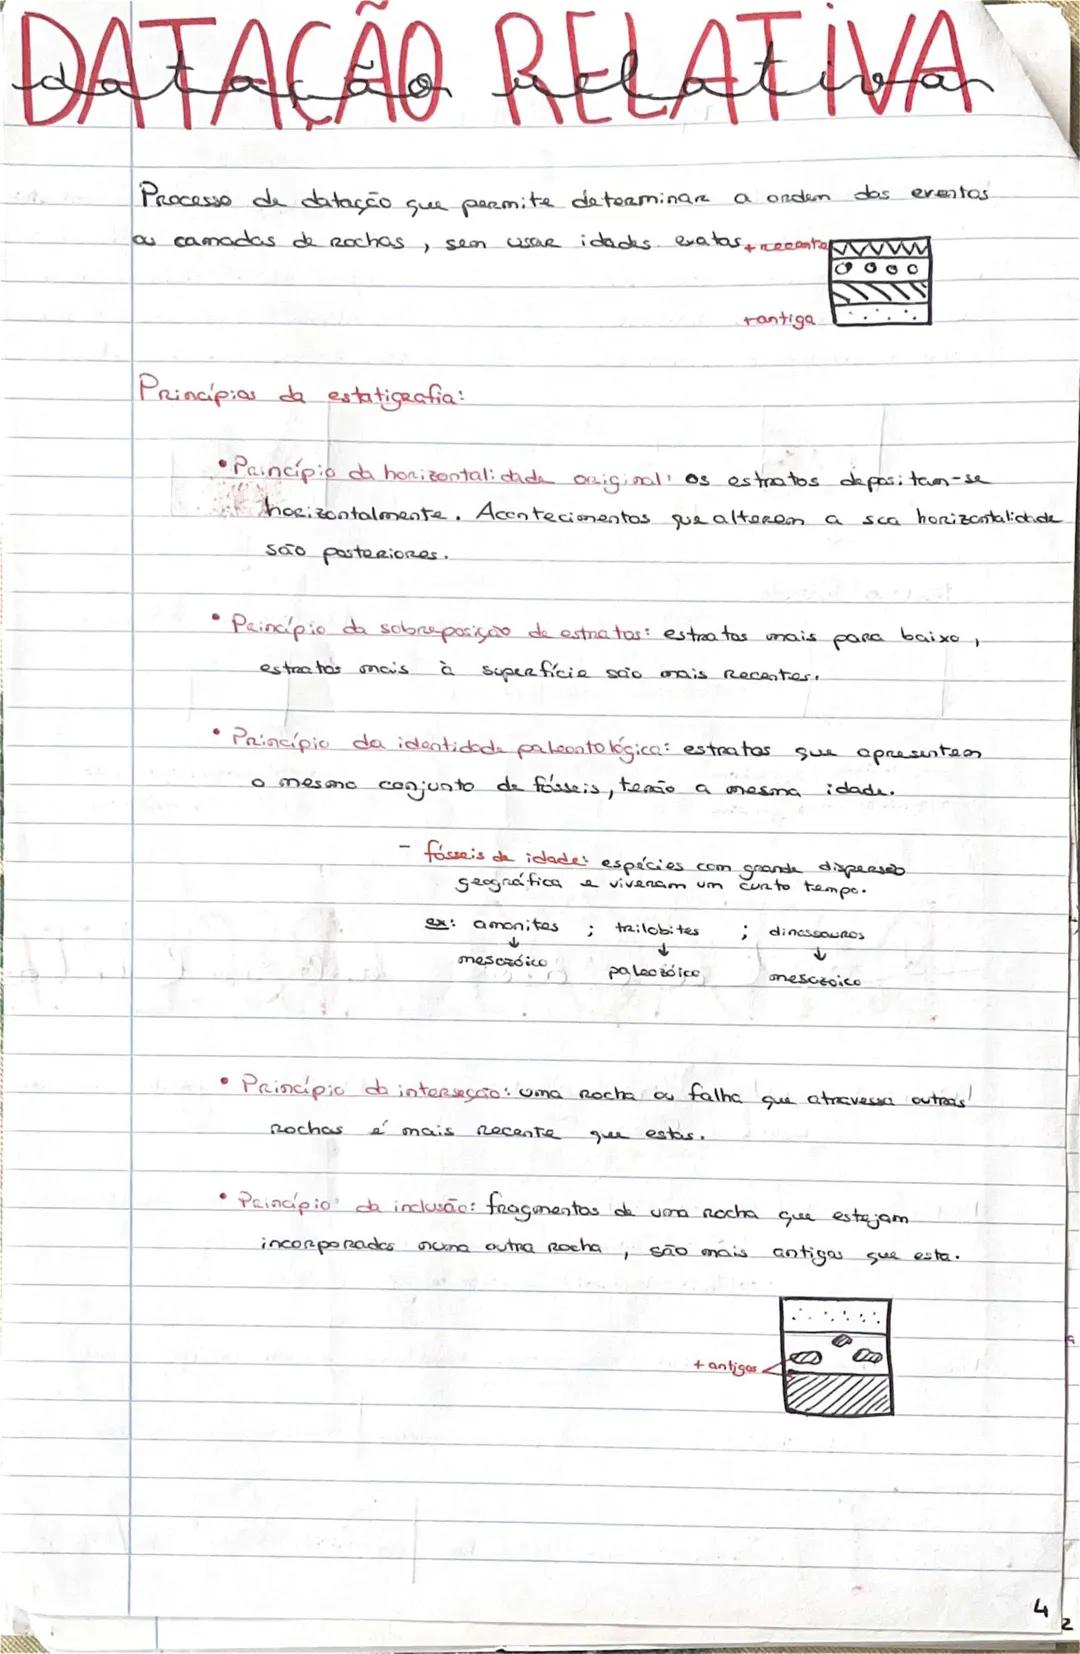 DATAÇÃO RELATIVA
datação relativa
Processo de datação que permite determinar a ordem dos eventos
ou camadas de rochas, sem usar idades exatas
+ recente
+ antiga
Princípios da estatigrafia:
• Princípio da horizontalidade original: os estratos depositam-se
horizontalmente. Acontecimentos que alterem a sua horizontalidade
são posteriores.
• Princípio da sobreposição de estratos: estratos mais para baixo,
estratos mais à superfície são mais recentes.
• Princípio da identidade paleontológica: estratos que apresentem
o mesmo conjunto de fósseis, terão a mesma idade.
- fósseis de idade: espécies com grande dispersão
geográfica e viveram um curto tempo.
ex: amonites ; trilobites ; dinossauros
↓ ↓ ↓
mesozóico paleozóico mesozoico
• Princípio da interseção: uma rocha ou falha que atravessa outras
rochas é mais recente que estas.
• Princípio da inclusão: fragmentos de uma rocha que estejam
incorporados numa outra rocha, são mais antigos que esta.
+ antigos
4
2